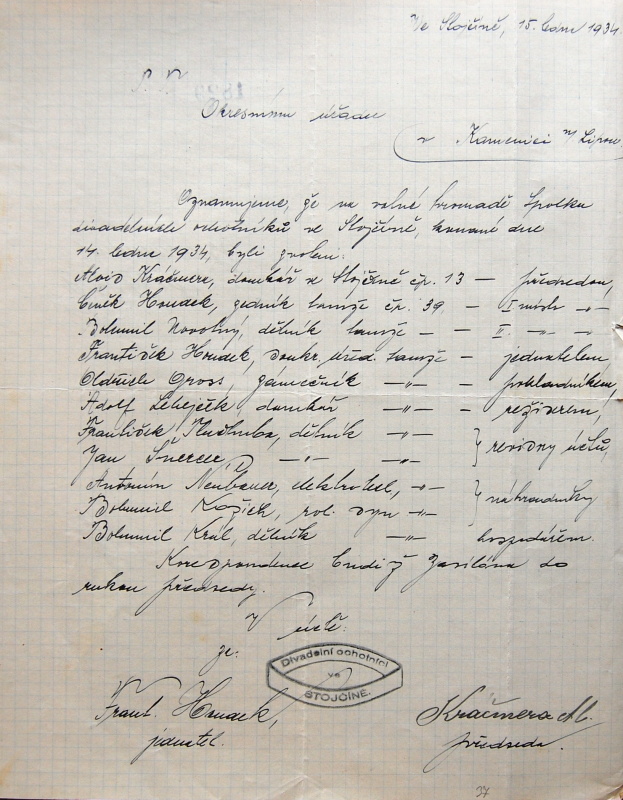 Ve Stojčíně, 15. ledna 1934.
P. T.
Okresnímu úřadu
v Kamenici n/Lipou
Oznamujeme, že na valné hromadě Spolku
divadelních ochotníků ve Stojčíně, konané dne
14. ledna 1934, byli zvoleni:
Alois Kračmera, domkář ve Stojčíně čp. 13 — předsedou,
Čeněk Houdek, zedník tamže čp. 39 — I. místo -„-
Bohumil Novotný, dělník tamže — — II. -„- -„-
František Houdek, soukr. úřed. tamže — jednatelem
Oldřich Gross, zámečník -„- — pokladníkem,
Adolf Lehejček, domkář -„- — režisérem,
František Hluchuba, dělník -„- } revisory účtů,
Jan -„- -„-
Antonín Neubauer, elektrotech. -„- } náhradníky
Bohumil Kožich, rol. syn -„-
Bohumil Král, dělník -„- hospodářem.
Korespondence budiž zasílána do
rukou předsedy.
V úctě:
za:
Divadelní ochotníci
ve
STOJČÍNĚ.
Frant. Houdek,
jednatel.
Kračmera Al.
předseda.
37